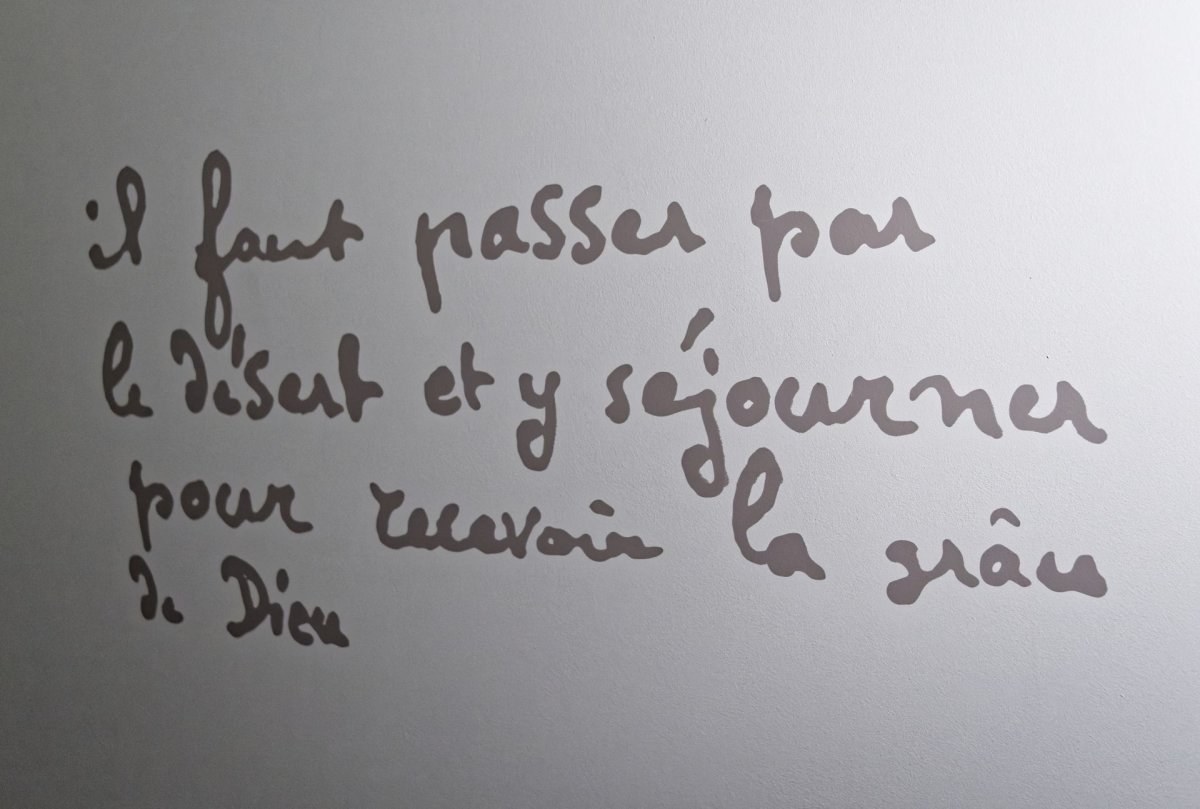 il faut passer par
le désert et y séjourner
pour recevoir la grâce
de Dieu